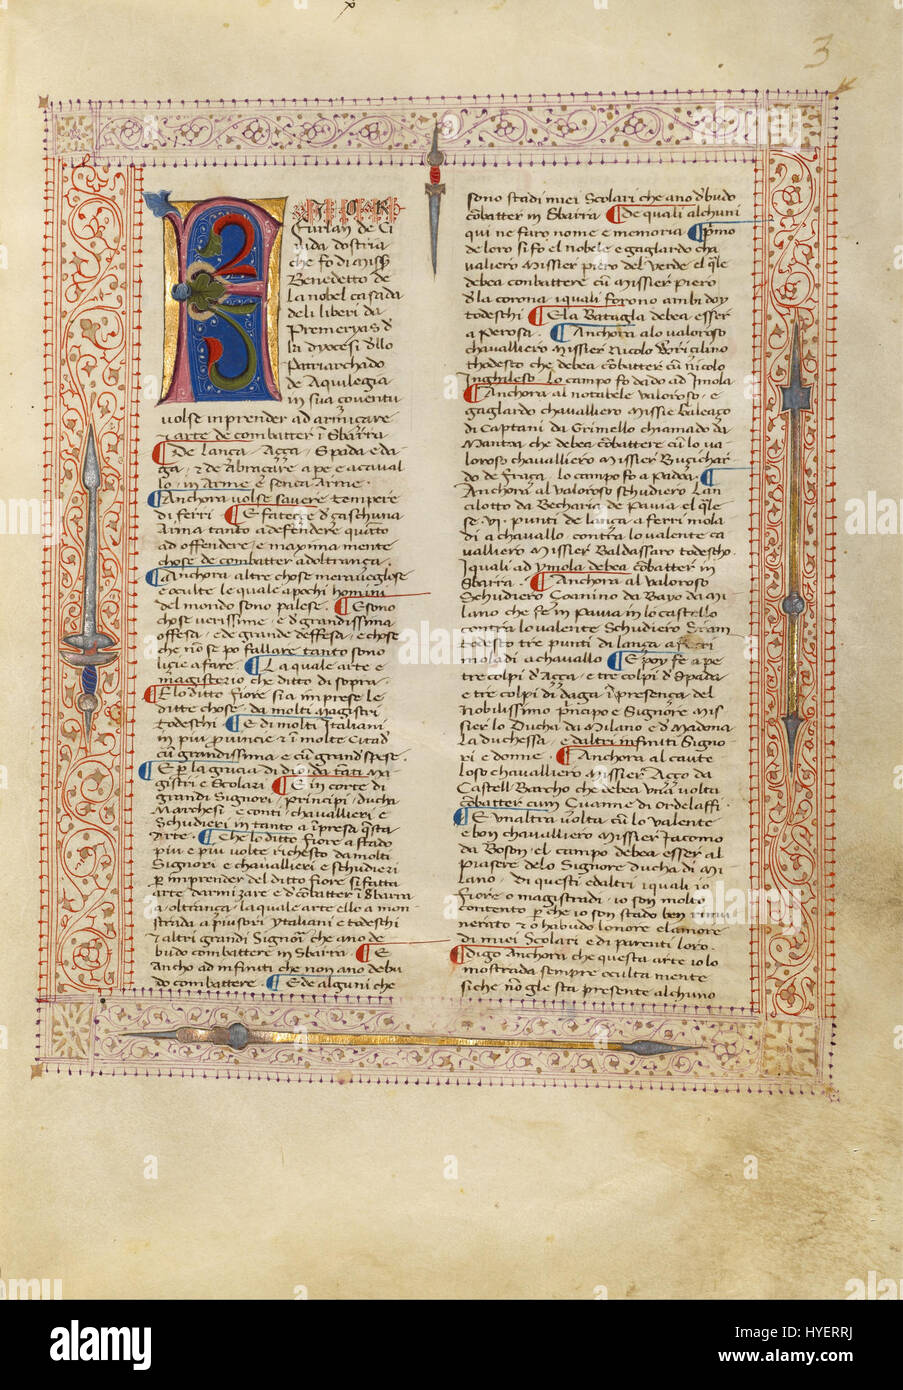 3
FIOR
Furlan de Ci
vida dostria
che fo di miss
Benedetto de
la nobel casada
deli liberi da
Premeryas d
la dyocesi dllo
Patriarchado
de Aquilegia
in sua coventu
volse inprender ad armiçare
e arte de combatter ĩ Sbarra
De lança Açça, Spada e da
ga, e de Abraçare a pe e acaval
lo, in arme e sença Arme.
Anchora volse savere tempere
di ferri. E fateççe d caschuna
Arma tanto adefendere quãto
ad offendere, e maxima mente
chose de combatter adoltrança.
Anchora altre chose meravegliose
e oculte le quale a pochi homini
del mondo sono palese. E sono
chose verissime, e d grandissima
offesa, e de grande deffesa, e chose
che nõ se po fallare tanto sono
licie a fare. La quale arte e
magisterio che ditto di sopra.
E lo ditto Fiore si a imprese le
ditte chose da molti Magistri
todeschi. E di molti Italiani
in piu provincie e ĩ molte Citad
cũ grandissima, e cũ grand spese.
E p la gracia di dio da tãti Ma
gistri e Scolari. E in corte di
grandi Signori, principi, ducha
Marchesi e conti, chavallieri e
Schudieri in tanto a ĩpresa qsta
Arte. Che lo ditto Fiore a stado
piu e piu volte richesto da molti
Signori e chavallieri e schudieri
p imprender del ditto fiore si fatta
arte d armizare e d cõbatter ĩ sbarra
a oltrança, la quale arte ello a mon
strada a piusori ytaliani e todeschi
e altri grandi Signori che ano de
budo combattere in Sbarra. E
ancho ad infiniti che non ano debu
do combattere. E de alguni che
sono stadi miei Scolari che ano dbudo
cõbatter in Sbarra De quali alchuni
qui ne faro nome e memoria Primo
de loro si fo el nobele e gagliardo cha
valiero Missier piero del verde el qle
debea conbattere cũ Missier piero
dla corona, i quali forono ambidoy
todeschi. E la Batagla debea esser
a Perosa. Anchora a lo valoroso
chavalliero Missier Nicolo Voriçilino
thodesco che debea cõbatter cũ Nicolo
Inghileso. Lo campo fo dado ad Imola
Anchora al notabele valoroso, e
gagliardo chavalliero Missier Galeaço
di Captani da Grimello chiamado da
Mantoa che debea cõbattere cũ lo va
loroso chavalliero Missier Buçichar
do de Fraça. Lo campo fo a Padoa.
Anchora al valoroso schudiero Lan
cilotto da Becharia de Pavia el qle
se .vi. punti de lança a ferri mola
di a chavallo contra lo valente ca
valliero Missier Baldassaro todescho.
I quali ad ymola debea cõbatter in
Sbarra. Anchora al valoroso
Schudiero Çoanino da Bayo da Mi
lano che fe in Pavia in lo castello
contra lo valente Schudiero Sram
todescho tre punti di lança a ferri
moladi a chavallo. E poy fe a pe
tre colpi d'Açça e tre colpi d Spada
e tre colpi di daga ĩ presença del
Nobilissimo Principo e Signore Mis
sier lo Ducha da Milano e d Madona
la duchessa, e d altri infiniti Signo
ri e donne. Anchora al caute
loso chavalliero Missier Açço da
Castell Barcho che debea una volta
cõbatter cum Çuanne di Ordelaffi.
E un altra volta cũ lo valente
e bon chavalliero Missier Jacomo
da Boson, el campo debea esser al
Piasere de lo Signore ducha di Mi
lano, di questi e d altri i quali io
Fiore o magistradi, io son molto
contento p che io son stado ben rimu
nerato e o habudo l onore e l amore
di miei Scolari e di parenti loro.
Digo anchora che questa arte io lo
mostrada sempre oculta mente
si che nõ gle sta presente alchuno
alamy
a
alamy
Image ID: HYERRJ
www.alamy.com